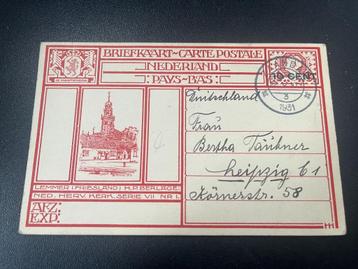 BRIEFKAART-CARTE POSTALE
NEDERLAND
PAYS-BAS
10 CENT
3
1931
Duitschland
Frau
Bertha Täubner
Leipzig C1
Körnerstr. 58
LEMMER (FRIESLAND) H.P. BERLAGE
NED. HERV. KERK. SERIE VII NR 1.
AFZ:
EXP: